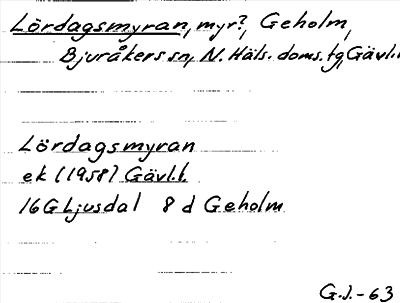 Lördagsmyran, myr?, Geholm,
Bjuråkers sn, N. Häls. doms. tg, Gävl.l.
Lördagsmyran
ek (1958) Gävl.l.
16G Ljusdal 8 d Geholm
G.J.-63